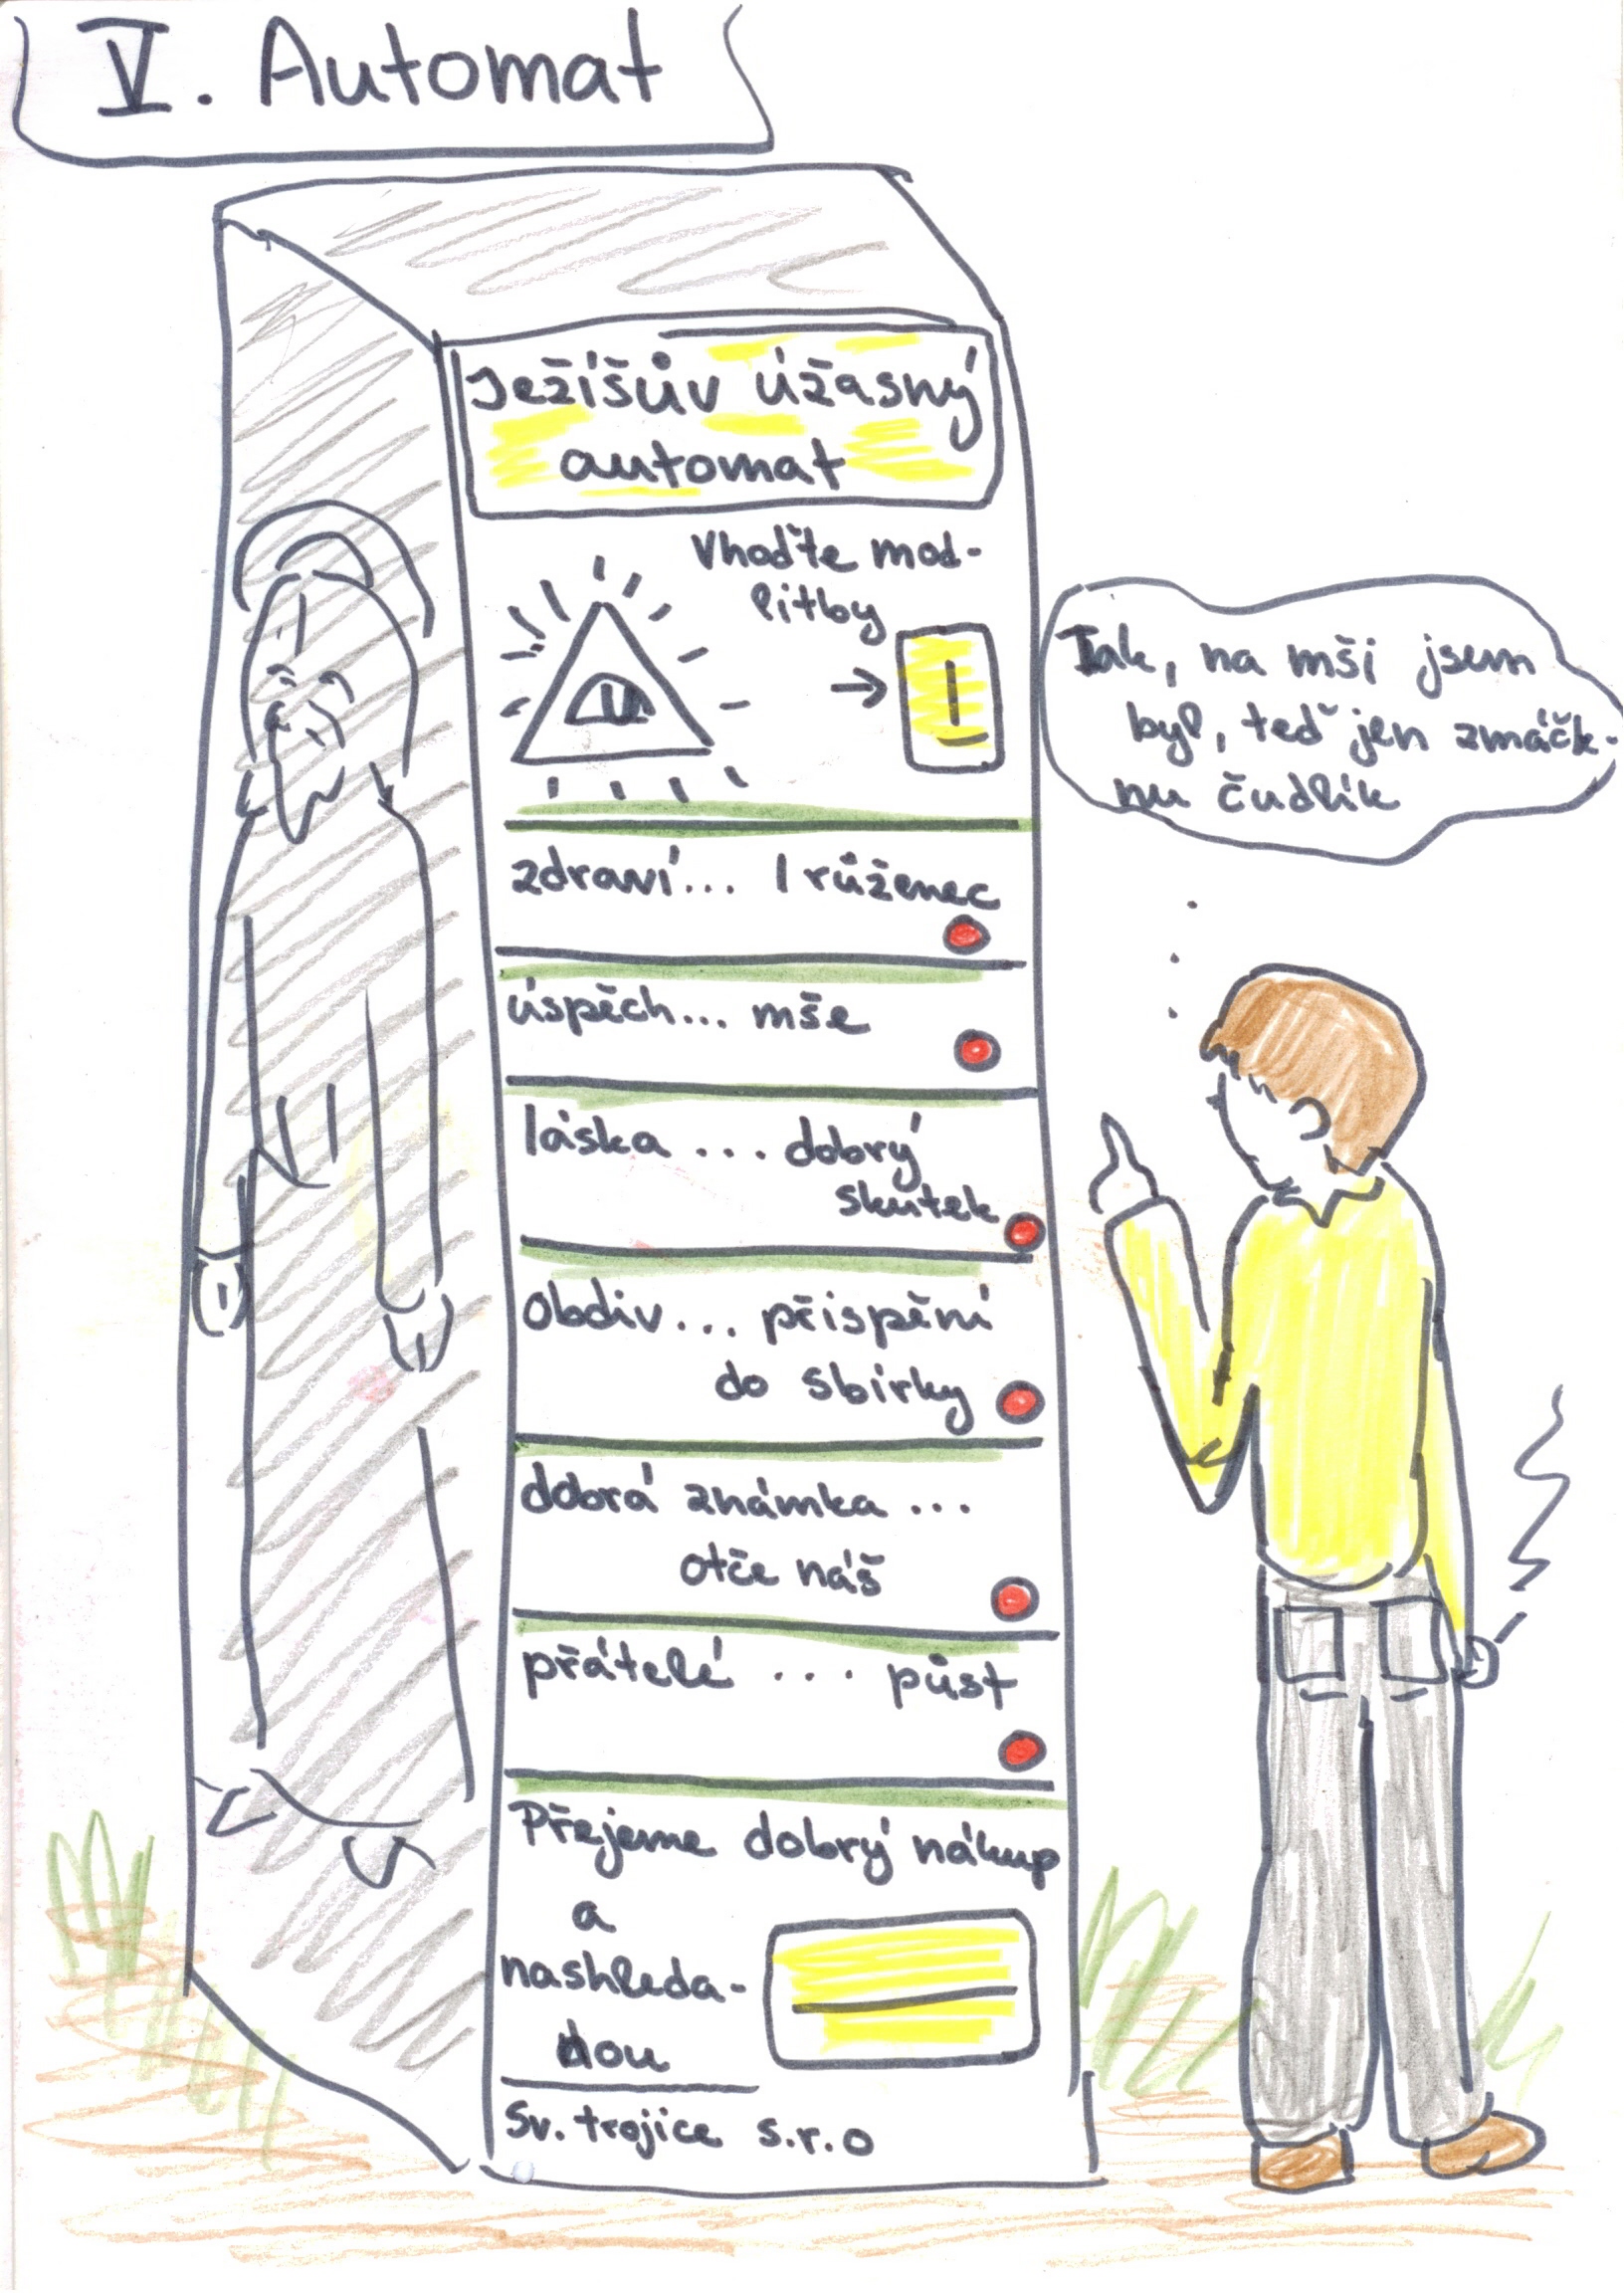 V. Automat
Ježíšův úžasný
automat
Vhoďte mod-
litby
→
Tak, na mši jsem
byl, teď jen zmáčk-
nu čudlík
zdraví... 1 růženec
úspěch... mše
láska ... dobrý
skutek
obdiv... přispění
do sbírky
dobrá známka ...
otče náš
přátelé .... půst
Přejeme dobrý nákup
a
nashleda-
nou
Sv. trojice s.r.o